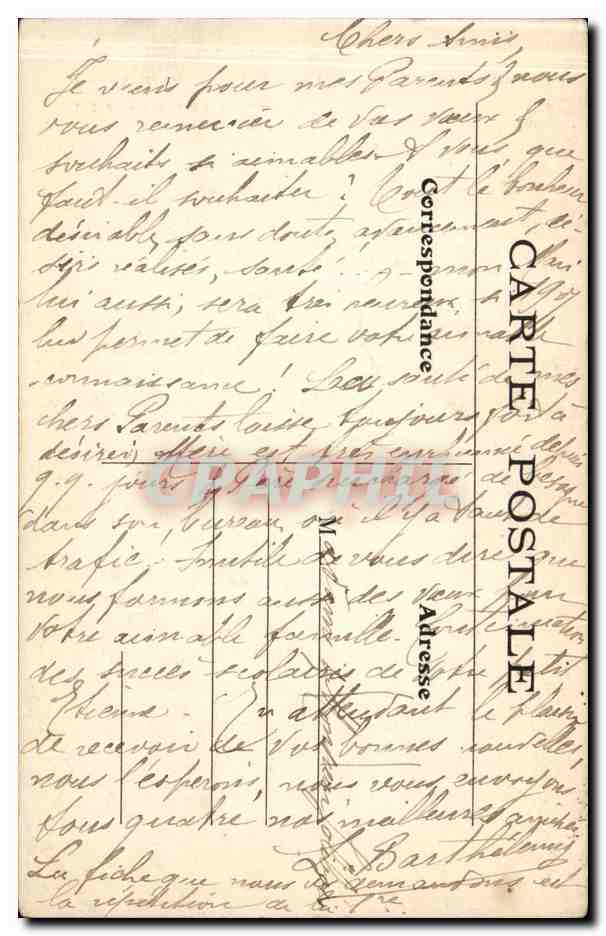 Chers Amis,
Je viens pour mes Parents & nous
vous remercier de vos vœux &
souhaits si aimables. A vous, que
faut-il souhaiter? Tout le bonheur
désirable sans doute, avancement, dé-
sirs réalisés, santé!
lui aussi, sera très heureux si 1907
lui permet de faire votre aimable
connaissance! La santé de mes
chers Parents laisse toujours fort à
désirer, Mère est très enrhumée depuis
q.q. jours & Père surmené de besogne
dans son bureau, où il y a tant de
trafic. Inutile de vous dire que
nous formons aussi des vœux pour
votre aimable famille. Continuation
des succès scolaires de votre petit
Etienne. En attendant le plaisir
de recevoir de vos bonnes nouvelles,
nous l'espérons, nous vous envoyons
tous quatre nos meilleures amitiés
Barthélemy
La fiche que nous vous demandons est
la répétition de la 1re.
CARTE POSTALE
Correspondance
Adresse
M
CPAPHIL